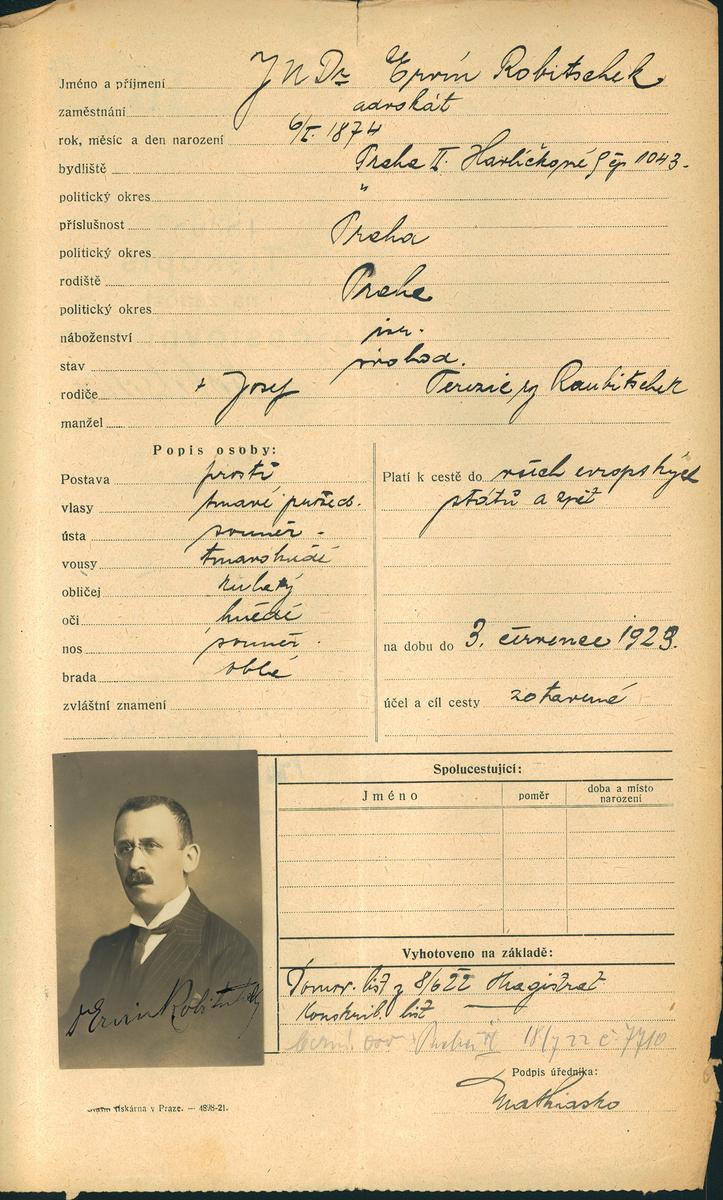 Jméno a příjmení JUDr Ervín Robitschek
zaměstnání advokát
rok, měsíc a den narození 6/I. 1874
bydliště Praha II. Havlíčkovo čp 1043.
politický okres "
příslušnost Praha
politický okres
rodiště Praha
politický okres
náboženství isr.
stav svobod.
rodiče + Josef Terezie rz Raubitschek
manžel
Popis osoby:
Postava prostř
vlasy tmavé prošed.
ústa souměr.
vousy tmavohnědé
obličej
oči hnědé
nos souměr.
brada oblé
zvláštní znamení
Platí k cestě do všech evropských
států a zpět
na dobu do 3. července 1923.
účel a cíl cesty zotavení
Spolucestující:
Jméno poměr doba a místo narození
Vyhotoveno na základě:
Domov. list z 8/6 22 Magistrat
Konskrib. list
Praha II 18/7 22 č 7710
Podpis úředníka:
Mathiasko
Dr Ervin Robitschek
tiskárna v Praze. — 4898-21.